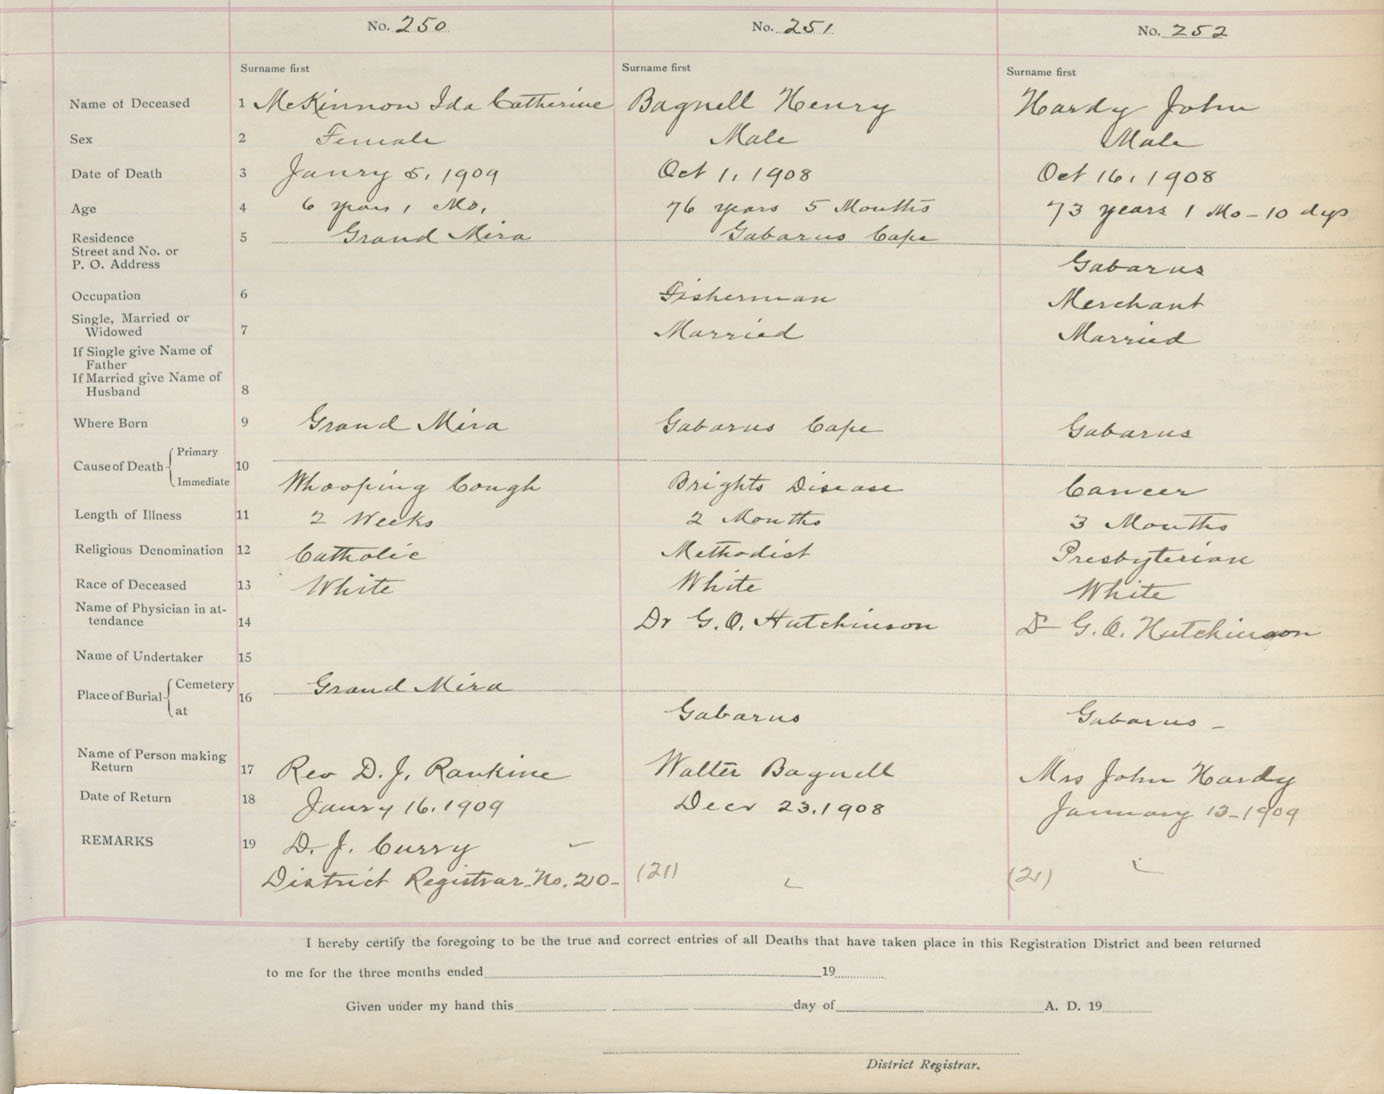 No. 250 No. 251 No. 252
Surname first Surname first Surname first
Name of Deceased 1 McKinnon Ida Catherine Bagnell Henry Hardy John
Sex 2 Female Male Male
Date of Death 3 Janry 5, 1909 Oct 1, 1908 Oct 16, 1908
Age 4 6 years 1 Mo, 76 years 5 Months 73 years 1 Mo - 10 dys
Residence 5 Grand Mira Gabarus Cape
Street and No. or
P. O. Address Gabarus
Occupation 6 Fisherman Merchant
Single, Married or
Widowed 7 Married Married
If Single give Name of
Father
If Married give Name of
Husband 8
Where Born 9 Grand Mira Gabarus Cape Gabarus
Primary
Cause of Death 10
Immediate Whooping Cough Brights Disease Cancer
Length of Illness 11 2 Weeks 2 Months 3 Months
Religious Denomination 12 Catholic Methodist Presbyterian
Race of Deceased 13 White White White
Name of Physician in at-
tendance 14 Dr G. O. Hutchinson Dr G. O. Hutchinson
Name of Undertaker 15
Cemetery Grand Mira
Place of Burial 16
at Gabarus Gabarus -
Name of Person making
Return 17 Rev D. J. Rankine Walter Bagnell Mrs John Hardy
Date of Return 18 Janry 16, 1909 Decr 23, 1908 January 13 - 1909
REMARKS 19 D. J. Curry
District Registrar No. 210 - (21) (21)
I hereby certify the foregoing to be the true and correct entries of all Deaths that have taken place in this Registration District and been returned
to me for the three months ended 19
Given under my hand this day of A. D. 19
District Registrar.